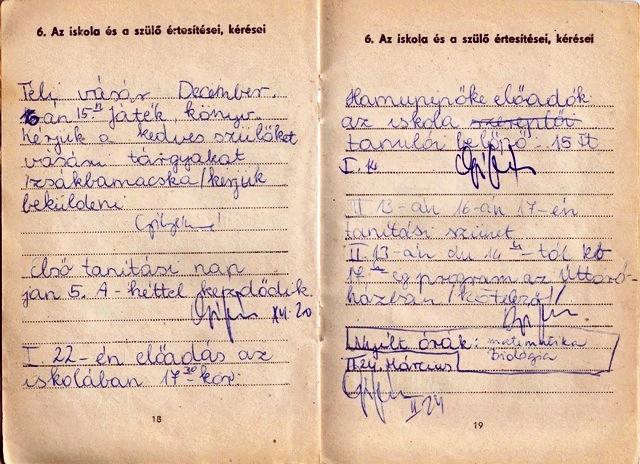 6. Az iskola és a szülő értesítései, kérései
Téli vásár December.
án 15-ig játék, könyv.
Kérjük a kedves szülőket
vásári tárgyakat
/zsákbamacska/ kérjük
beküldeni.
Első tanítási nap
jan 5. A-héttel kezdődik
XII. 20
I 22-én előadás az
iskolában 17 30-kor.
18
6. Az iskola és a szülő értesítései, kérései
Hamupipőke előadók
az iskola szereplői
tanulói belépő- 15 Ft
I. 14
II 13-án 16-án 17-én
tanítási szünet
II. 13-án du 14 -tól
17 -ig program az Úttörő-
házban /kötelező!/
Nyílt órák: matematika
biológia
Március
II 24
19